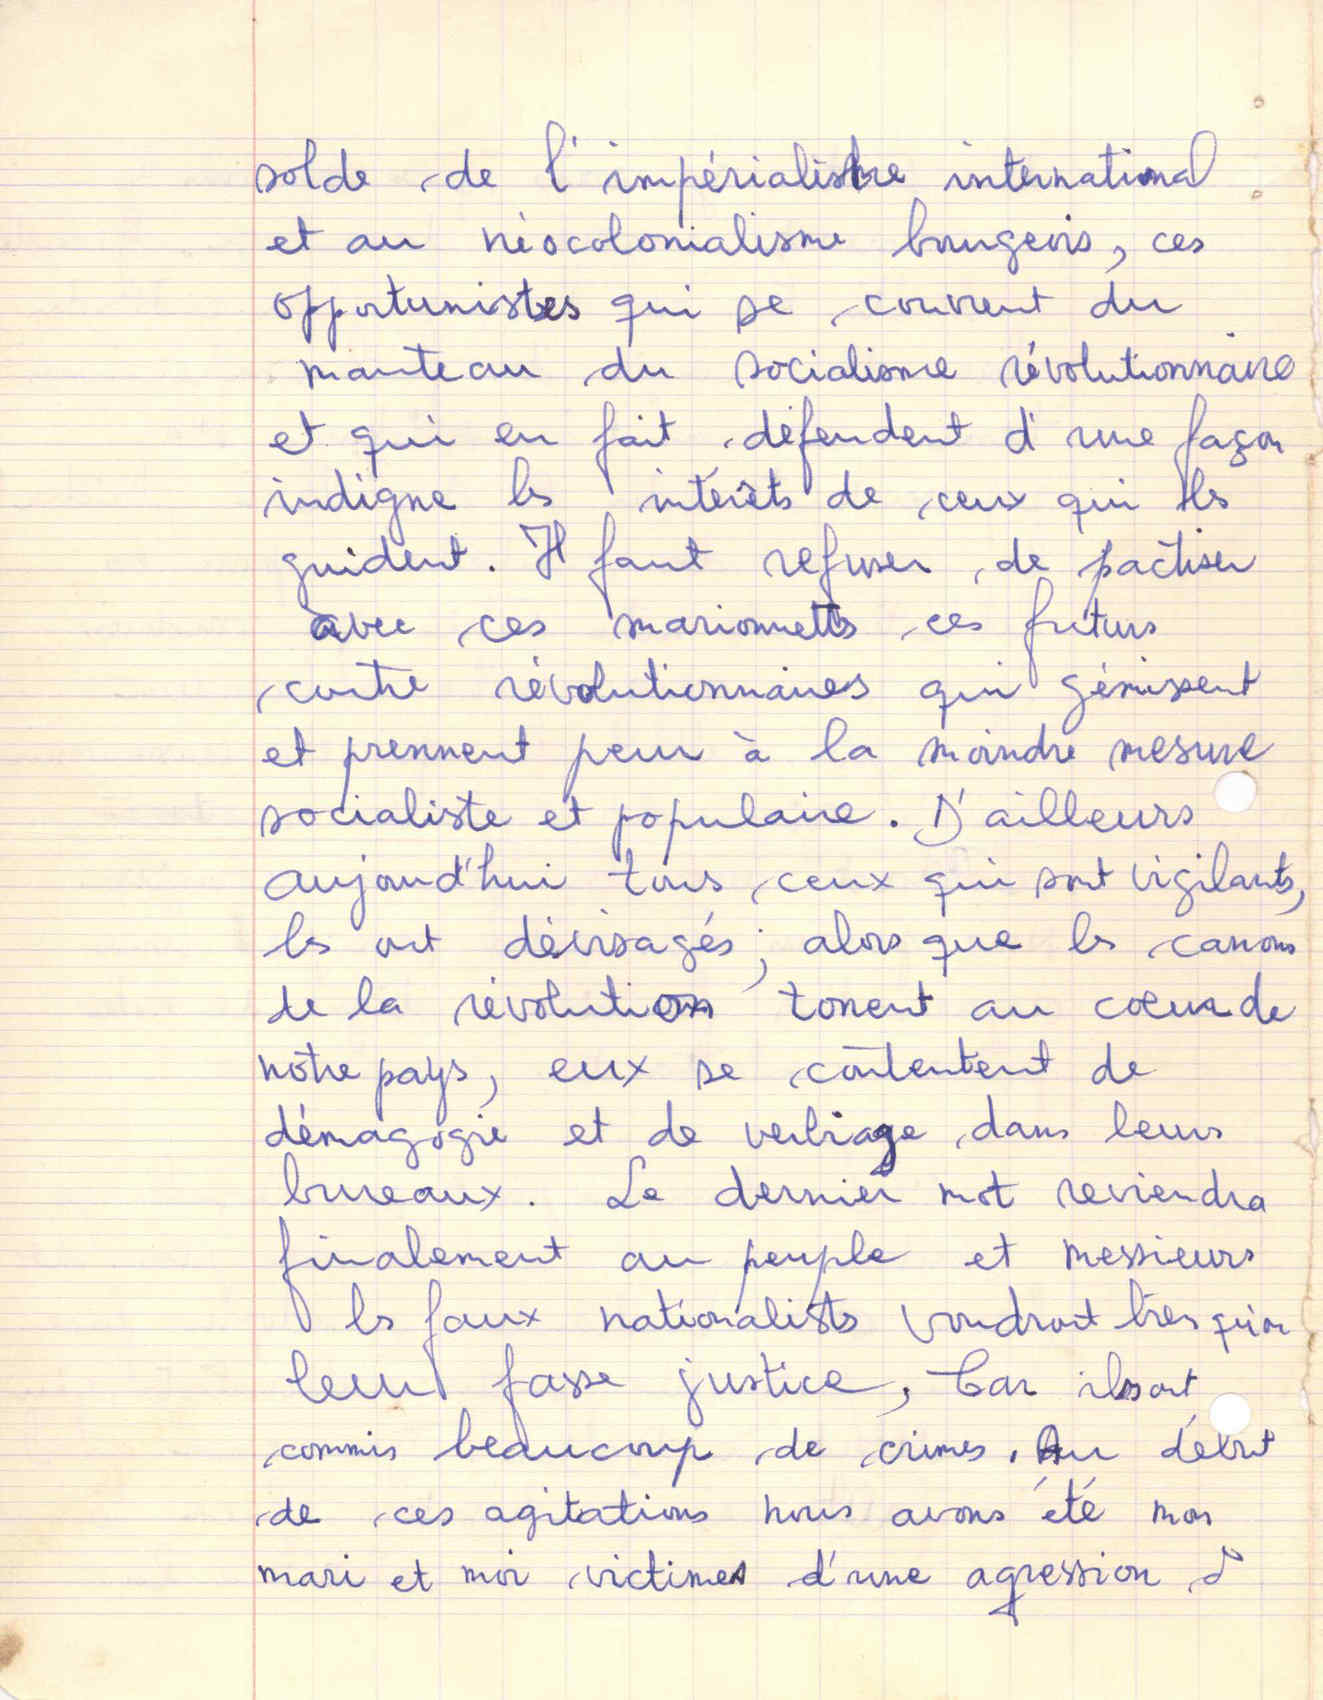 solde de l'impérialisme international
et au néocolonialisme bourgeois, ces
opportunistes qui se couvrent du
manteau du socialisme révolutionnaire
et qui en fait défendent d'une façon
indigne les intérêts de ceux qui les
guident. Il faut refuser de pactiser
avec ces marionnettes ces futurs
contre révolutionnaires qui gémissent
et prennent peur à la moindre mesure
socialiste et populaire. D'ailleurs
aujourd'hui tous ceux qui sont vigilants,
les ont dévisagés; alors que les canons
de la révolution tonent au coeur de
nôtre pays, eux se contentent de
démagogie et de verbiage dans leurs
bureaux. Le dernier mot reviendra
finalement au peuple et messieurs
les faux nationalistes voudront bien qu'on
leur fasse justice, Car ils ont
commis beaucoup de crimes. Au début
de ces agitations nous avons été mon
mari et moi victimes d'une agression d'